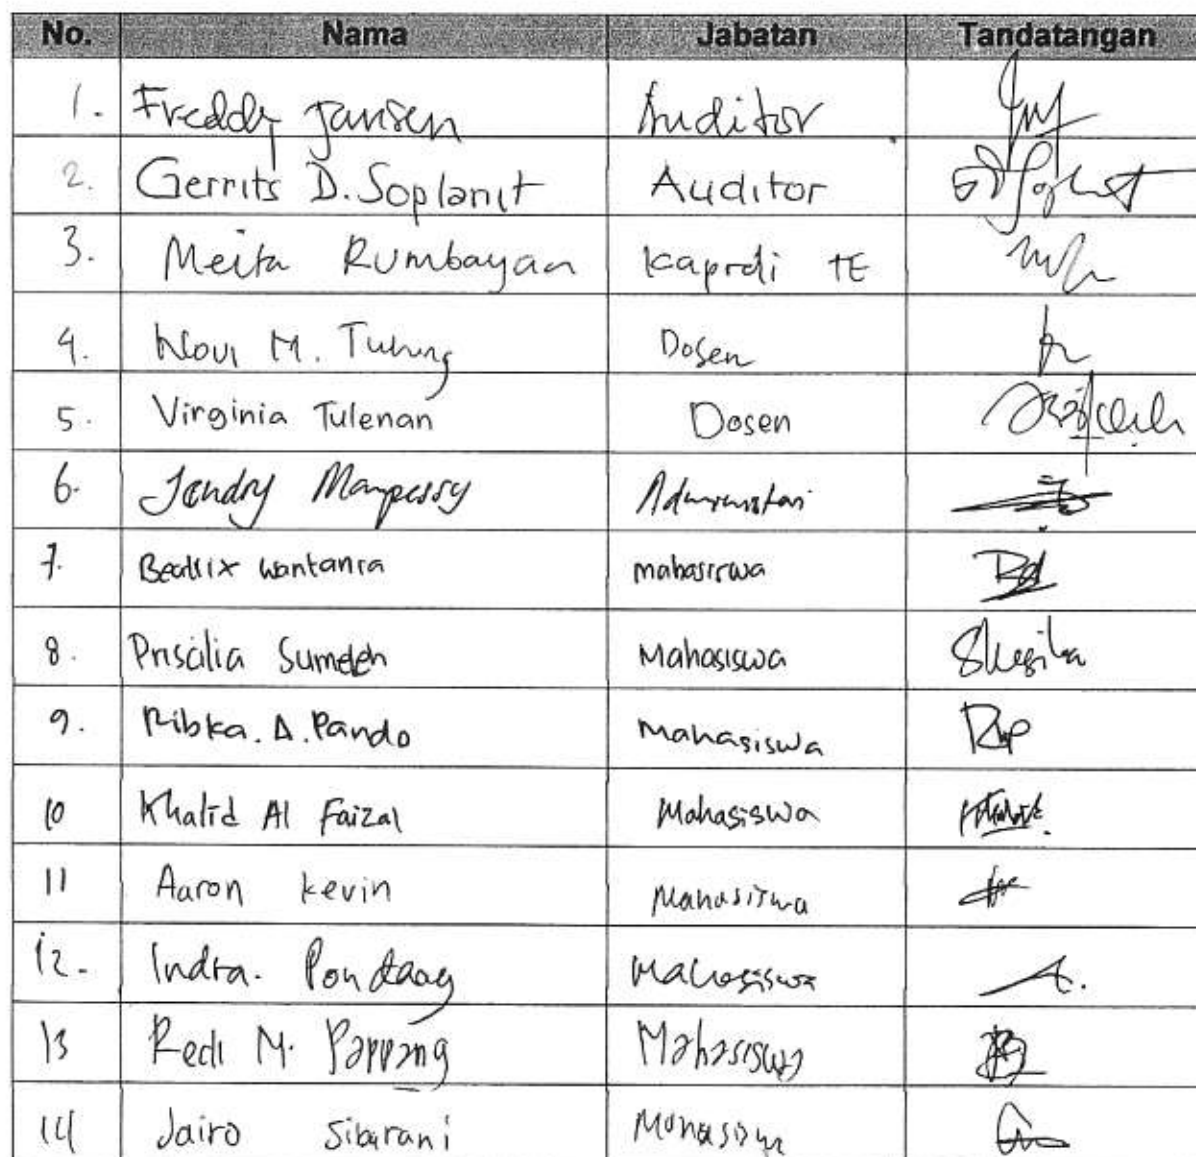 No. Nama Jabatan Tandatangan
1. Freddy Jansen Auditor
2. Gerrits D. Soplanit Auditor
3. Meita Rumbayan Kaprodi TE
4. Novi M. Tulung Dosen
5. Virginia Tulenan Dosen
6. Jendry Mampessy
7. Beatrix Wantania mahasiswa
8. Priscilia Mahasiswa
9. Ribka. A. Pando Mahasiswa
10 Khalid Al Faizal Mahasiswa
11 Aaron Kevin Mahasiswa
12. Indra. Pondaag Mahasiswa
13 Redi M. Mahasiswa
14 Jairo Sibarani